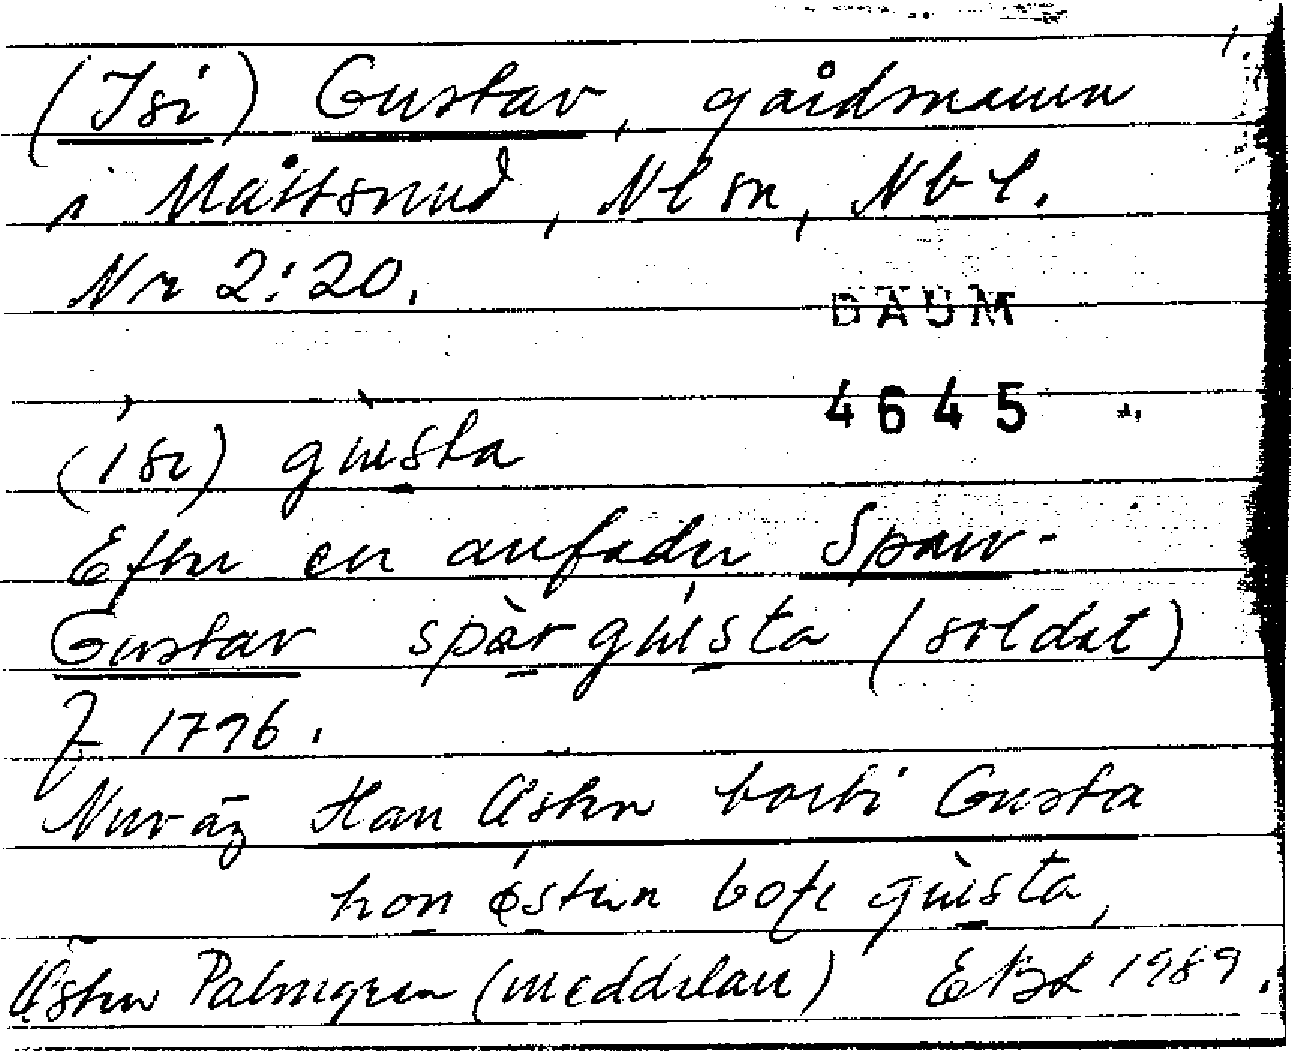 (Isi) Gustav, gårdsnamn
i Måttsund, Nl sn, Nb l.
Nr 2:20.
DAUM
4645
(isi) gusta
Efter en anfader Sparv-
Gustav spàr gusta (soldat)
f 1796.
Nuv äg Han Östen borti Gusta
hon östen boti gusta,
Östen Palmgren (meddelare) EBL 1989.